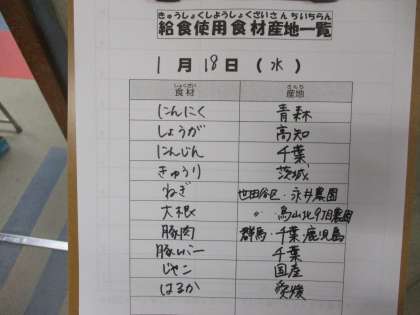 きゅうしょくしようしょくざいさんちいちらん
給食使用食材産地一覧
1月18日(水)
しょくざい さんち
食材 産地
にんにく 青森
しょうが 高知
にんじん 千葉
きゅうり 茨城
ねぎ 世田谷区・永井農園
大根 〃 烏山北9丁目農園
豚肉 群馬・千葉・鹿児島
豚レバー 千葉
じゃこ 国産
はるか 愛媛